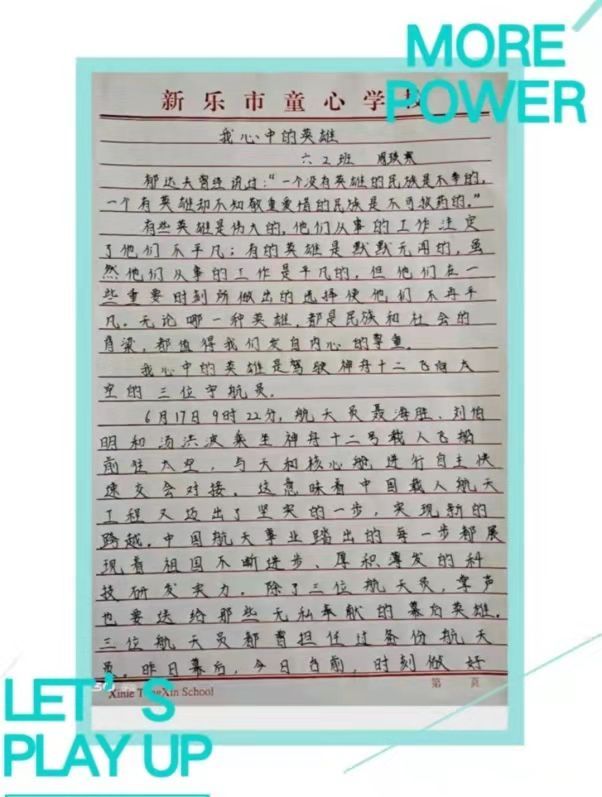 MORE
POWER
新乐市童心学校
我心中的英雄
六.2班
郁达夫曾经说过:“一个没有英雄的民族是不幸的,
一个有英雄却不知敬重爱惜的民族是不可救药的。”
有些英雄是伟大的,他们从事的工作注定
了他们不平凡;有的英雄是默默无闻的,虽
然他们从事的工作是平凡的,但他们在一
些重要时刻所做出的选择使他们不再平
凡。无论哪一种英雄,都是民族和社会的
脊梁,都值得我们发自内心的尊重。
我心中的英雄是驾驶神舟十二飞向太
空的三位宇航员。
6月17日9时22分,航天员聂海胜、刘伯
明和汤洪波乘坐神舟十二号载人飞船
前往太空,与天和核心舱进行自主快
速交会对接。这意味着中国载人航天
工程又迈出了坚实的一步,实现新的
跨越。中国航天事业踏出的每一步都展
现着祖国不断进步、厚积薄发的科
技研发实力。除了三位航天员,掌声
也要送给那些无私奉献的幕后英雄。
三位航天员都曾担任过备份航天
员。昨日幕后,今日台前,时刻做好
Xinle TongXin School
第 页
LET'S
PLAY UP